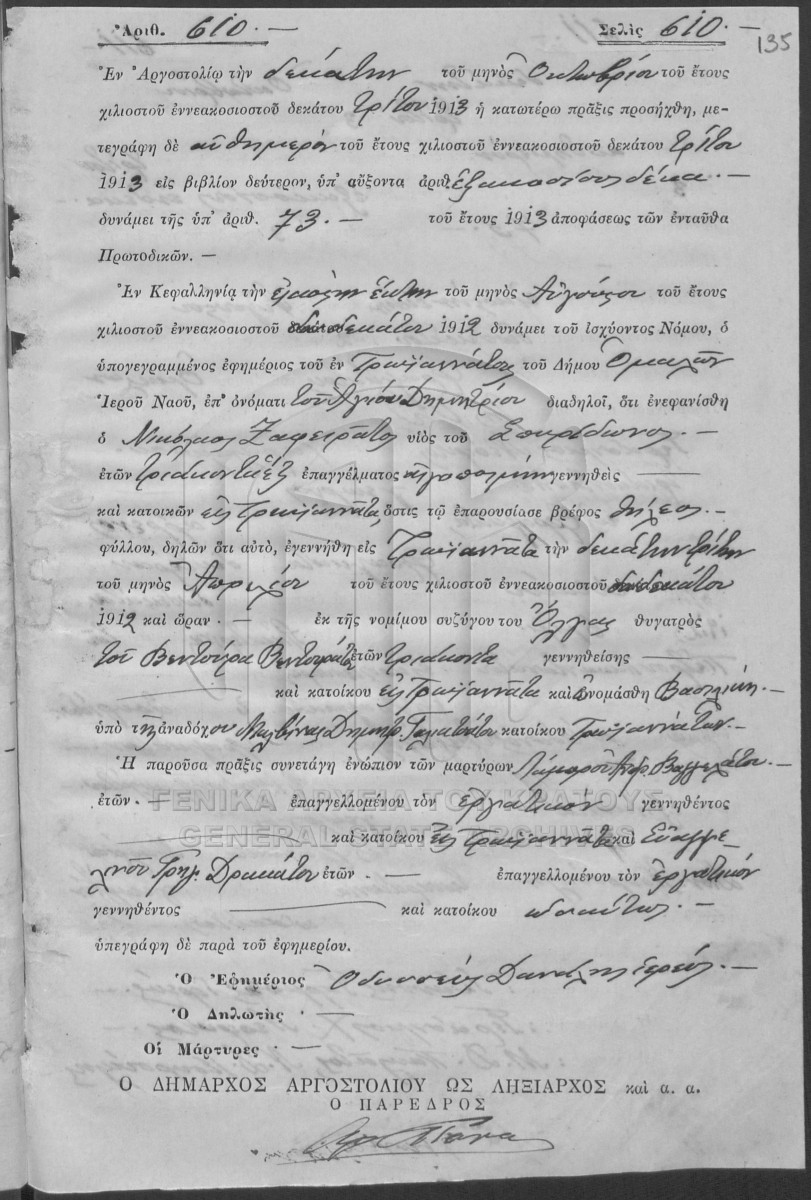 Ἀριθ. 610. — Σελὶς 610. —
135
Ἐν Ἀργοστολίῳ τὴν δεκάτην τοῦ μηνὸς Ὀκτωβρίου τοῦ ἔτους
χιλιοστοῦ ἐννεακοσιοστοῦ δεκάτου τρίτου 1913 ἡ κατωτέρω πρᾶξις προσήχθη, με-
τεγράφη δὲ αὐθημερὸν τοῦ ἔτους χιλιοστοῦ ἐννεακοσιοστοῦ δεκάτου τρίτου
1913 εἰς βιβλίον δεύτερον, ὑπ' αὔξοντα ἀριθ. ἑξακόσια δέκα. —
δυνάμει τῆς ὑπ' ἀριθ. 73. — τοῦ ἔτους 1913 ἀποφάσεως τῶν ἐνταῦθα
Πρωτοδικῶν. —
Ἐν Κεφαλληνίᾳ τὴν εἰκοστὴν ἕκτην τοῦ μηνὸς Αὐγούστου τοῦ ἔτους
χιλιοστοῦ ἐννεακοσιοστοῦ δωδεκάτου 1912 δυνάμει τοῦ ἰσχύοντος Νόμου, ὁ
ὑπογεγραμμένος ἐφημέριος τοῦ ἐν Τρωϊαννάτοις τοῦ Δήμου Ὁμαλῶν
Ἱεροῦ Ναοῦ, ἐπ' ὀνόματι τοῦ Ἁγίου Δημητρίου διαδηλοῖ, ὅτι ἐνεφανίσθη
ὁ Νικόλαος Ζαφειρᾶτος υἱὸς τοῦ Σπυρίδωνος. —
ἐτῶν τριάκοντα ἓξ ἐπαγγέλματος γεννηθεὶς —
καὶ κατοικῶν εἰς Τρωϊαννᾶτα, ὅστις τῷ ἐπαρουσίασε βρέφος θήλεος. —
φύλλου, δηλῶν ὅτι αὐτὸ, ἐγεννήθη εἰς Τρωϊαννᾶτα τὴν δεκάτην τρίτην
τοῦ μηνὸς Ἀπριλίου τοῦ ἔτους χιλιοστοῦ ἐννεακοσιοστοῦ δωδεκάτου
1912 καὶ ὥραν . — ἐκ τῆς νομίμου συζύγου του Ὄλγας θυγατρὸς
τοῦ Βεντούρα Βεντουράτου ἐτῶν τριάκοντα γεννηθείσης —
— καὶ κατοίκου εἰς Τρωϊαννᾶτα καὶ ὠνομάσθη Βασιλική. —
ὑπὸ τῆς ἀναδόχου Μαλβίνας Δημητρ. Γαλιατσάτου κατοίκου Τρωϊαννάτων. —
Ἡ παροῦσα πρᾶξις συνετάγη ἐνώπιον τῶν μαρτύρων Λάμπρου Ἀνδρ. Βαγγελάτου. —
ἐτῶν — ἐπαγγελλομένου τὸν ἐργατικὸν γεννηθέντος
— καὶ κατοίκου εἰς Τρωϊαννᾶτα καὶ Εὐαγγε-
λινοῦ Γρηγ. Δρακάτου ἐτῶν . — ἐπαγγελλομένου τὸν ἐργατικὸν
γεννηθέντος — καὶ κατοίκου ὡσαύτως. —
ὑπεγράφη δὲ παρὰ τοῦ ἐφημερίου.
Ὁ Ἐφημέριος Ὀδυσσεὺς Δανάλης ἱερεύς. —
Ὁ Δηλωτὴς . —
Οἱ Μάρτυρες . —
Ο ΔΗΜΑΡΧΟΣ ΑΡΓΟΣΤΟΛΙΟΥ ΩΣ ΛΗΞΙΑΡΧΟΣ καὶ α. α.
Ο ΠΑΡΕΔΡΟΣ
ΓΕΝΙΚΑ ΑΡΧΕΙΑ ΤΟΥ ΚΡΑΤΟΥΣ
GENERAL STATE ARCHIVES